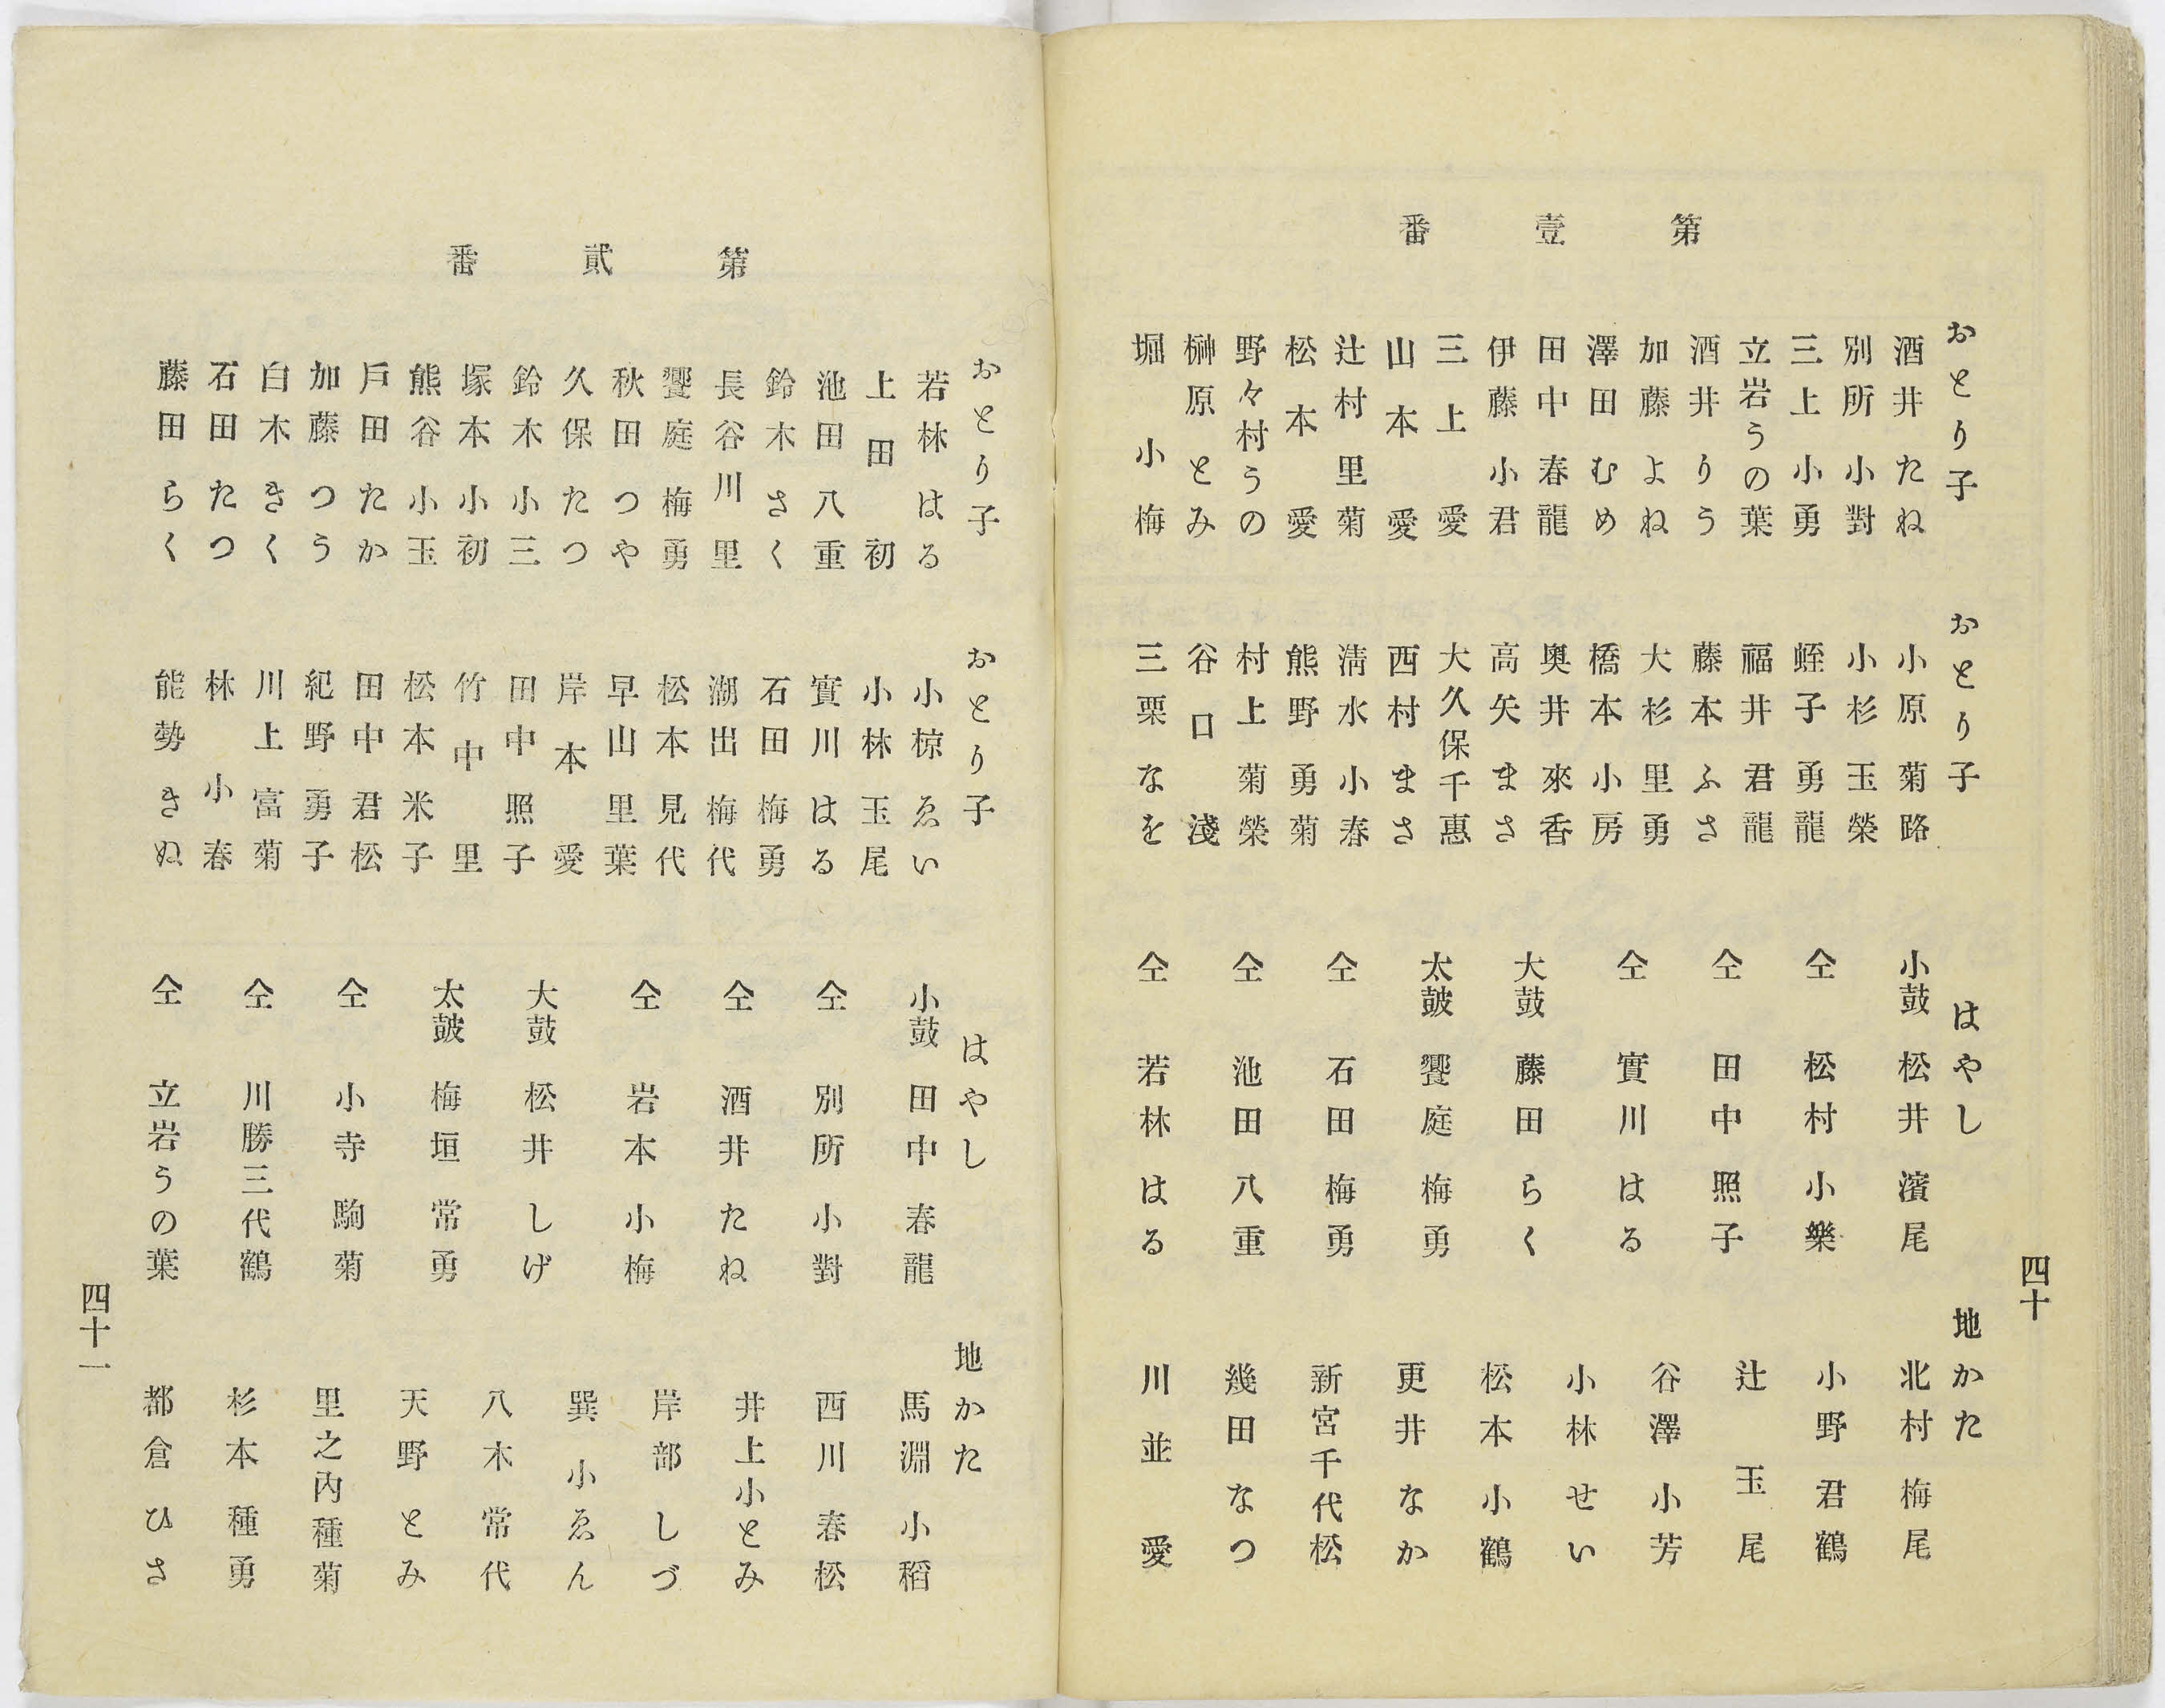 第壹番
おとり子
酒井たね
別所小對
三上小勇
立岩うの葉
酒井りう
加藤よね
澤田むめ
田中春龍
伊藤小君
三上愛
山本愛
辻村里菊
松本愛
野々村うの
榊原とみ
堀小梅
おとり子
小原菊路
小杉玉榮
蛭子勇龍
福井君龍
藤本ふさ
大杉里勇
橋本小房
奥井來香
高矢まさ
大久保千惠
西村まさ
淸水小春
熊野勇菊
村上菊榮
谷口淺
三栗なを
はやし
小鼓 松井濱尾
仝 松村小樂
仝 田中照子
仝 實川はる
大鼓 藤田らく
太皷 饗庭梅勇
仝 石田梅勇
仝 池田八重
仝 若林はる
地かた
北村梅尾
小野君鶴
辻玉尾
谷澤小芳
小林せい
松本小鶴
更井なか
新宮千代松
幾田なつ
川並愛
四十
第貳番
おとり子
若林はる
上田初
池田八重
鈴木さく
長谷川里
饗庭梅勇
秋田つや
久保たつ
鈴木小三
塚本小初
熊谷小玉
戶田たか
加藤つう
白木きく
石田たつ
藤田らく
おとり子
小椋ゑい
小林玉尾
實川はる
石田梅勇
潮出梅代
松本見代
早山里葉
岸本愛
田中照子
竹中里
松本米子
田中君松
紀野勇子
川上富菊
林小春
能勢きぬ
はやし
小鼓 田中春龍
仝 別所小對
仝 酒井たね
仝 岩本小梅
大鼓 松井しげ
太皷 梅垣常勇
仝 小寺駒菊
仝 川勝三代鶴
仝 立岩うの葉
地かた
馬淵小稻
西川春松
井上小とみ
岸部しづ
巽小ゑん
八木常代
天野とみ
里之內種菊
杉本種勇
都倉ひさ
四十一